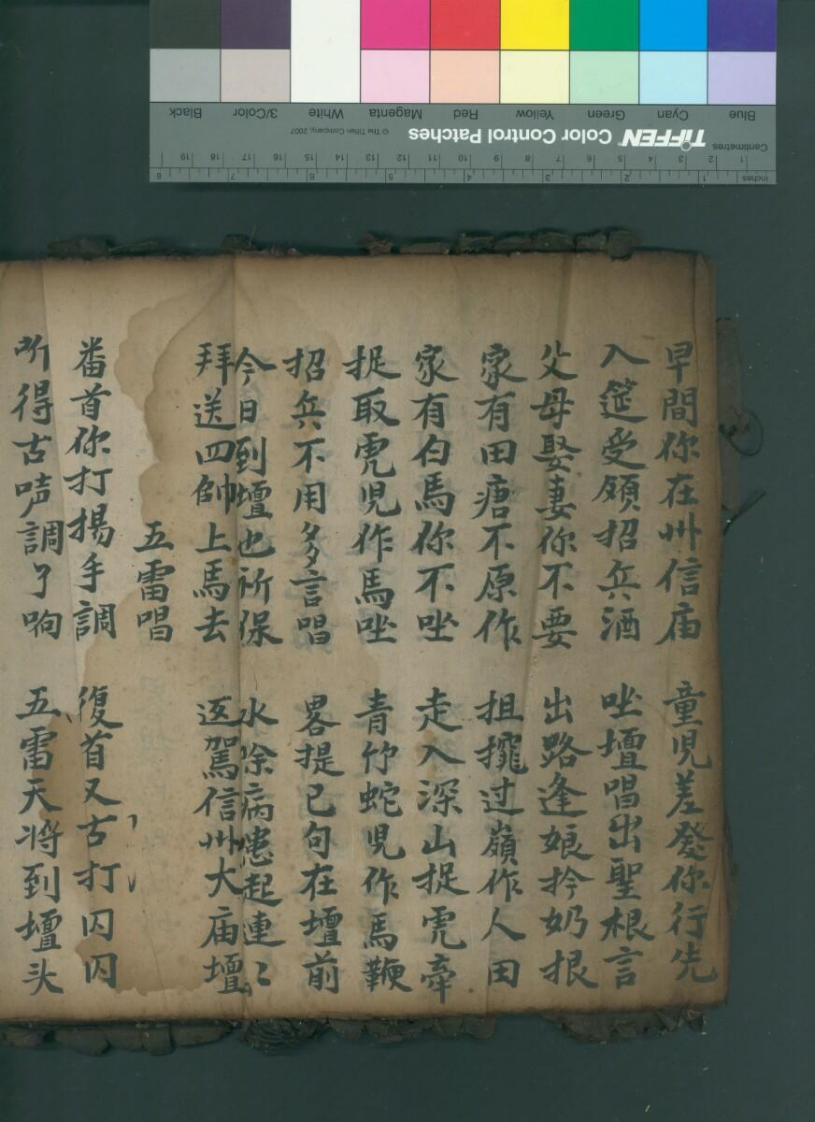 早間你在州信庙　童児差發你行先
入筵受領招兵酒　唑壇唱出聖根言
父母娶妻你不要　出路逢娘扲奶根
家有田瘏不原作　担攏过嶺作人田
家有白馬你不唑　走入深山捉虎牽
捉取虎児作馬唑　青竹蛇児作馬鞭
招兵不用多言唱　畧提已句在壇前
今日到壇也祈保　水除病患起連〻
拜送四帥上馬去　返駕信州大庙壇
五雷唱
番首你打揚手調　復首又古打囚囚
所得古唭調了响　五雷天将到壇头
Blue
Cyan
Green
Yellow
Red
Magenta
White
3/Color
Black
TIFFEN Color Control Patches
© The Tiffen Company, 2007
Centimetres
1 2 3 4 5 6 7 8 9 10 11 12 13 14 15 16 17 18 19
Inches
1 2 3 4 5 6 7 8